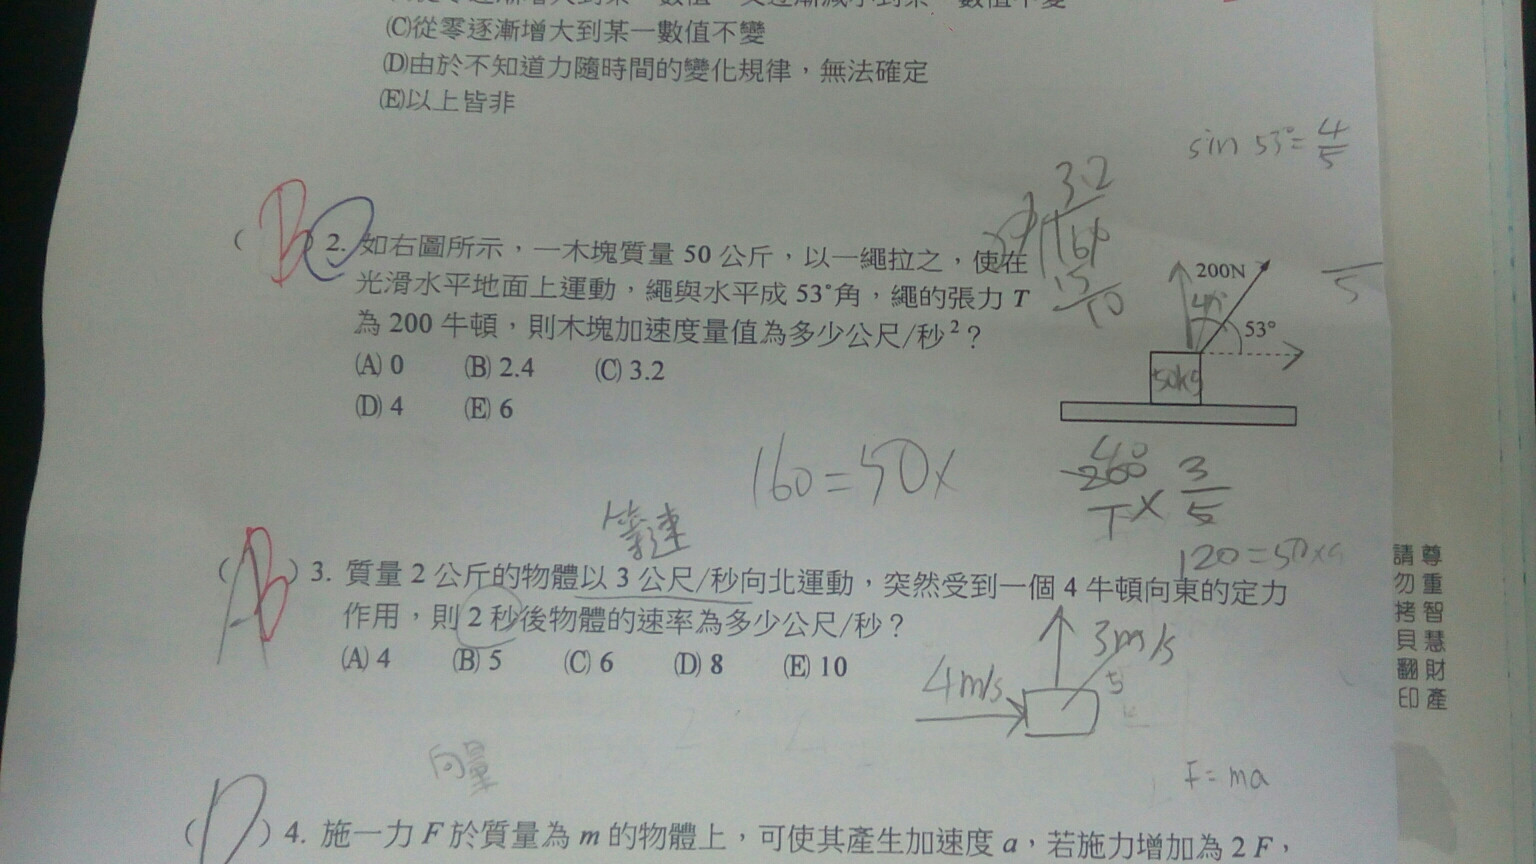 (C)從零逐漸增大到某一數值不變
(D)由於不知道力隨時間的變化規律，無法確定
(E)以上皆非
sin 53°= 4/5
3.2
( B ) 2. 如右圖所示，一木塊質量 50 公斤，以一繩拉之，使在
光滑水平地面上運動，繩與水平成 53°角，繩的張力 T
為 200 牛頓，則木塊加速度量值為多少公尺/秒²？
(A) 0 (B) 2.4 (C) 3.2
(D) 4 (E) 6
200N
53°
50kg
5
160=50x
40
200
T × 3/5
120=50×a
等速
( B ) 3. 質量 2 公斤的物體以 3 公尺/秒向北運動，突然受到一個 4 牛頓向東的定力
作用，則 2 秒後物體的速率為多少公尺/秒？
(A) 4 (B) 5 (C) 6 (D) 8 (E) 10
3m/s
4m/s
5
向量
F=ma
( D ) 4. 施一力 F 於質量為 m 的物體上，可使其產生加速度 a，若施力增加為 2 F，
尊重智慧財產
請勿拷貝翻印